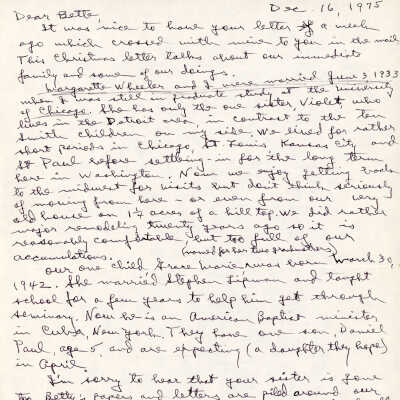 Dec 16, 1975
Dear Bette,
It was nice to have your letter of a week
ago which crossed with mine to you in the mail.
This Christmas letter talks about our immediate
family and some of our doings.
Margarette Wheeler and I were married June 3, 1933
when I was still in graduate study at the University
of Chicago. She has only the one sister, Violet, who
lives in the Detroit area, in contrast to the ten
Smith children on my side. We lived for rather
short periods in Chicago, St Louis, Kansas City and
St Paul before settling-in for the long term
here in Washington. Now we enjoy getting back
to the midwest for visits but don't think seriously
of moving from here - or even from our very
old house on 1½ acres of a hill top. We did rather
major remodeling twenty years ago so it is
reasonably comfortable but too full of our
accumulations. (named for her two grandmothers)
Our one child, Grace Marie, was born March 30,
1942. She married Stephen Lipman and taught
school for a few years to help him get through
seminary. Now he is an American Baptist minister
in Cuba, New York. They have one son, Daniel
Paul, age 5, and are expecting (a daughter, they hope)
in April.
I'm sorry to hear that your sister is gone
too. Betty's papers and letters are piled around our